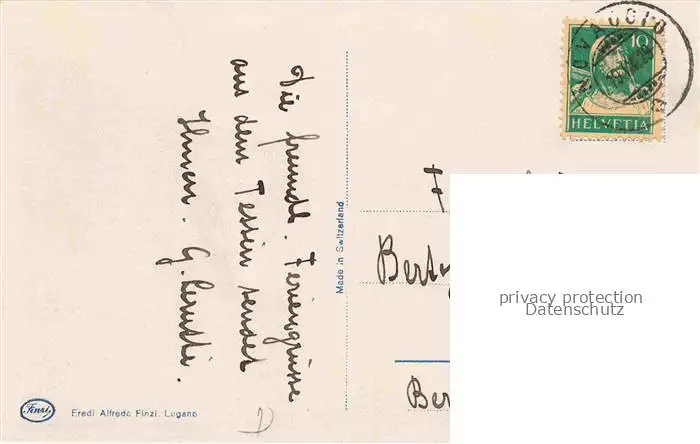 Die freundl. Feriengrüsse
aus dem Tessin sendet
Ihnen. G.
Made in Switzerland
Finzi
Eredi Alfredo Finzi. Lugano
10
HELVETIA
F
Bert
Ber
privacy protection
Datenschutz